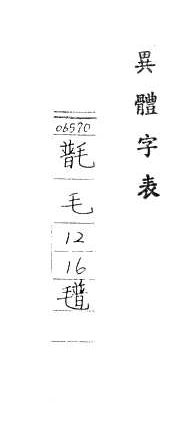 異體字表
06570
毛
12
16